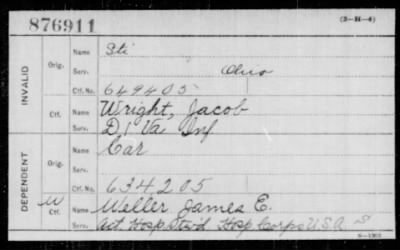 876911
(3-H-4)
INVALID
Orig.
Name Sti
Serv. Ohio
Ctf. No. 649405
Ctf.
Name Wright, Jacob
Serv. D 1 Va Inf
DEPENDENT
Orig.
Name Car
Serv.
Ctf. No. 634205
W
Ctf.
Name Weller James E.
Serv. Act. Hosp. Stwd Hosp Corps U.S.A.